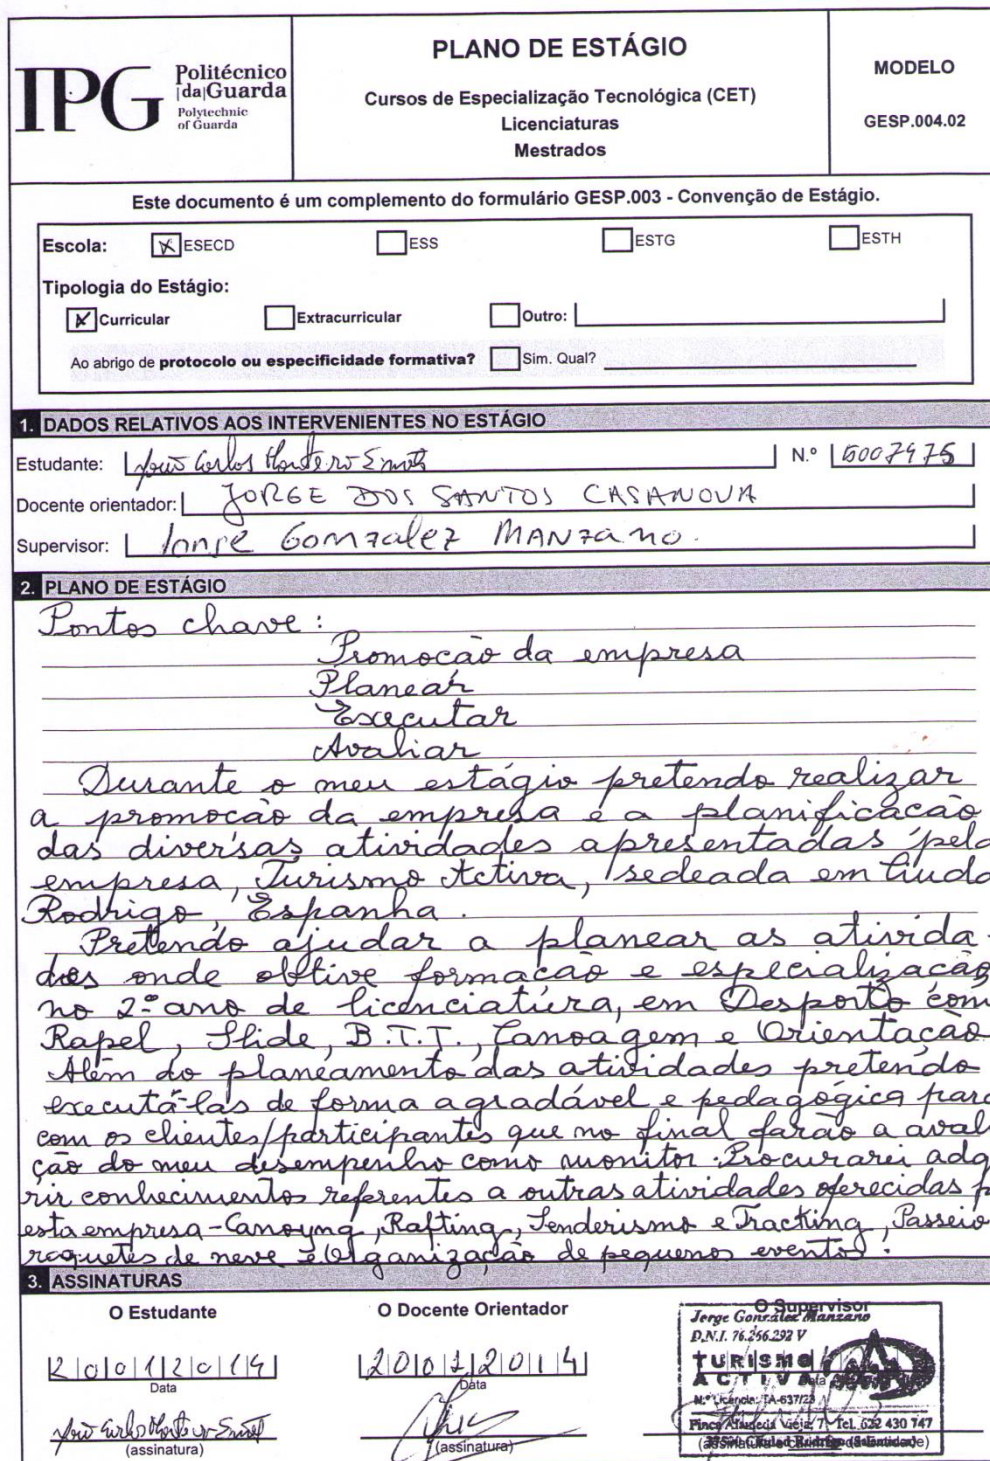 IPG Politécnico |da|Guarda
Polytechnic of Guarda
PLANO DE ESTÁGIO
Cursos de Especialização Tecnológica (CET)
Licenciaturas
Mestrados
MODELO
GESP.004.02
Este documento é um complemento do formulário GESP.003 - Convenção de Estágio.
Escola: ESECD ESS ESTG ESTH
Tipologia do Estágio:
Curricular Extracurricular Outro:
Ao abrigo de protocolo ou especificidade formativa? Sim. Qual?
1. DADOS RELATIVOS AOS INTERVENIENTES NO ESTÁGIO
Estudante: Carlos N.º 5007975
Docente orientador: JORGE DOS SANTOS CASANOVA
Supervisor: Gomzalez MANzano.
2. PLANO DE ESTÁGIO
Pontos chave:
Promocão da empresa
Planear
Executar
Avaliar
Durante o meu estágio pretendo realizar
a promocão da empresa e a planificacão
das diversas atividades apresentadas pela
empresa, Turismo Activa, sedeada em Ciuda
Rodrigo, Espanha.
Pretendo ajudar a planear as ativida-
des onde obtive formacão e especializacão
no 2º ano de licenciatura, em Desporto com
Rapel, Slide, B.T.T., Canoagem e Orientacão
Além do planeamento das atividades pretendo
executá-las de forma agradável e pedagógica para
com os clientes/participantes que no final farão a avali
ção do meu desempenho como monitor. Procurarei adq
rir conhecimentos referentes a outras atividades oferecidas p
esta empresa - Canoyng, Rafting, Senderismo e Tracking, Passeio
raquetes de neve e Organização de pequenos eventos.
3. ASSINATURAS
O Estudante O Docente Orientador O Supervisor
Jorge González Manzano
D.N.I. 76.256.292 V
TURISMO
ACTIVA
N.º Licencia: TA-637/23
Tel. 622 430 747
37500 Ciudad Rodrigo
20012014
Data Data Data
(assinatura) (assinatura)